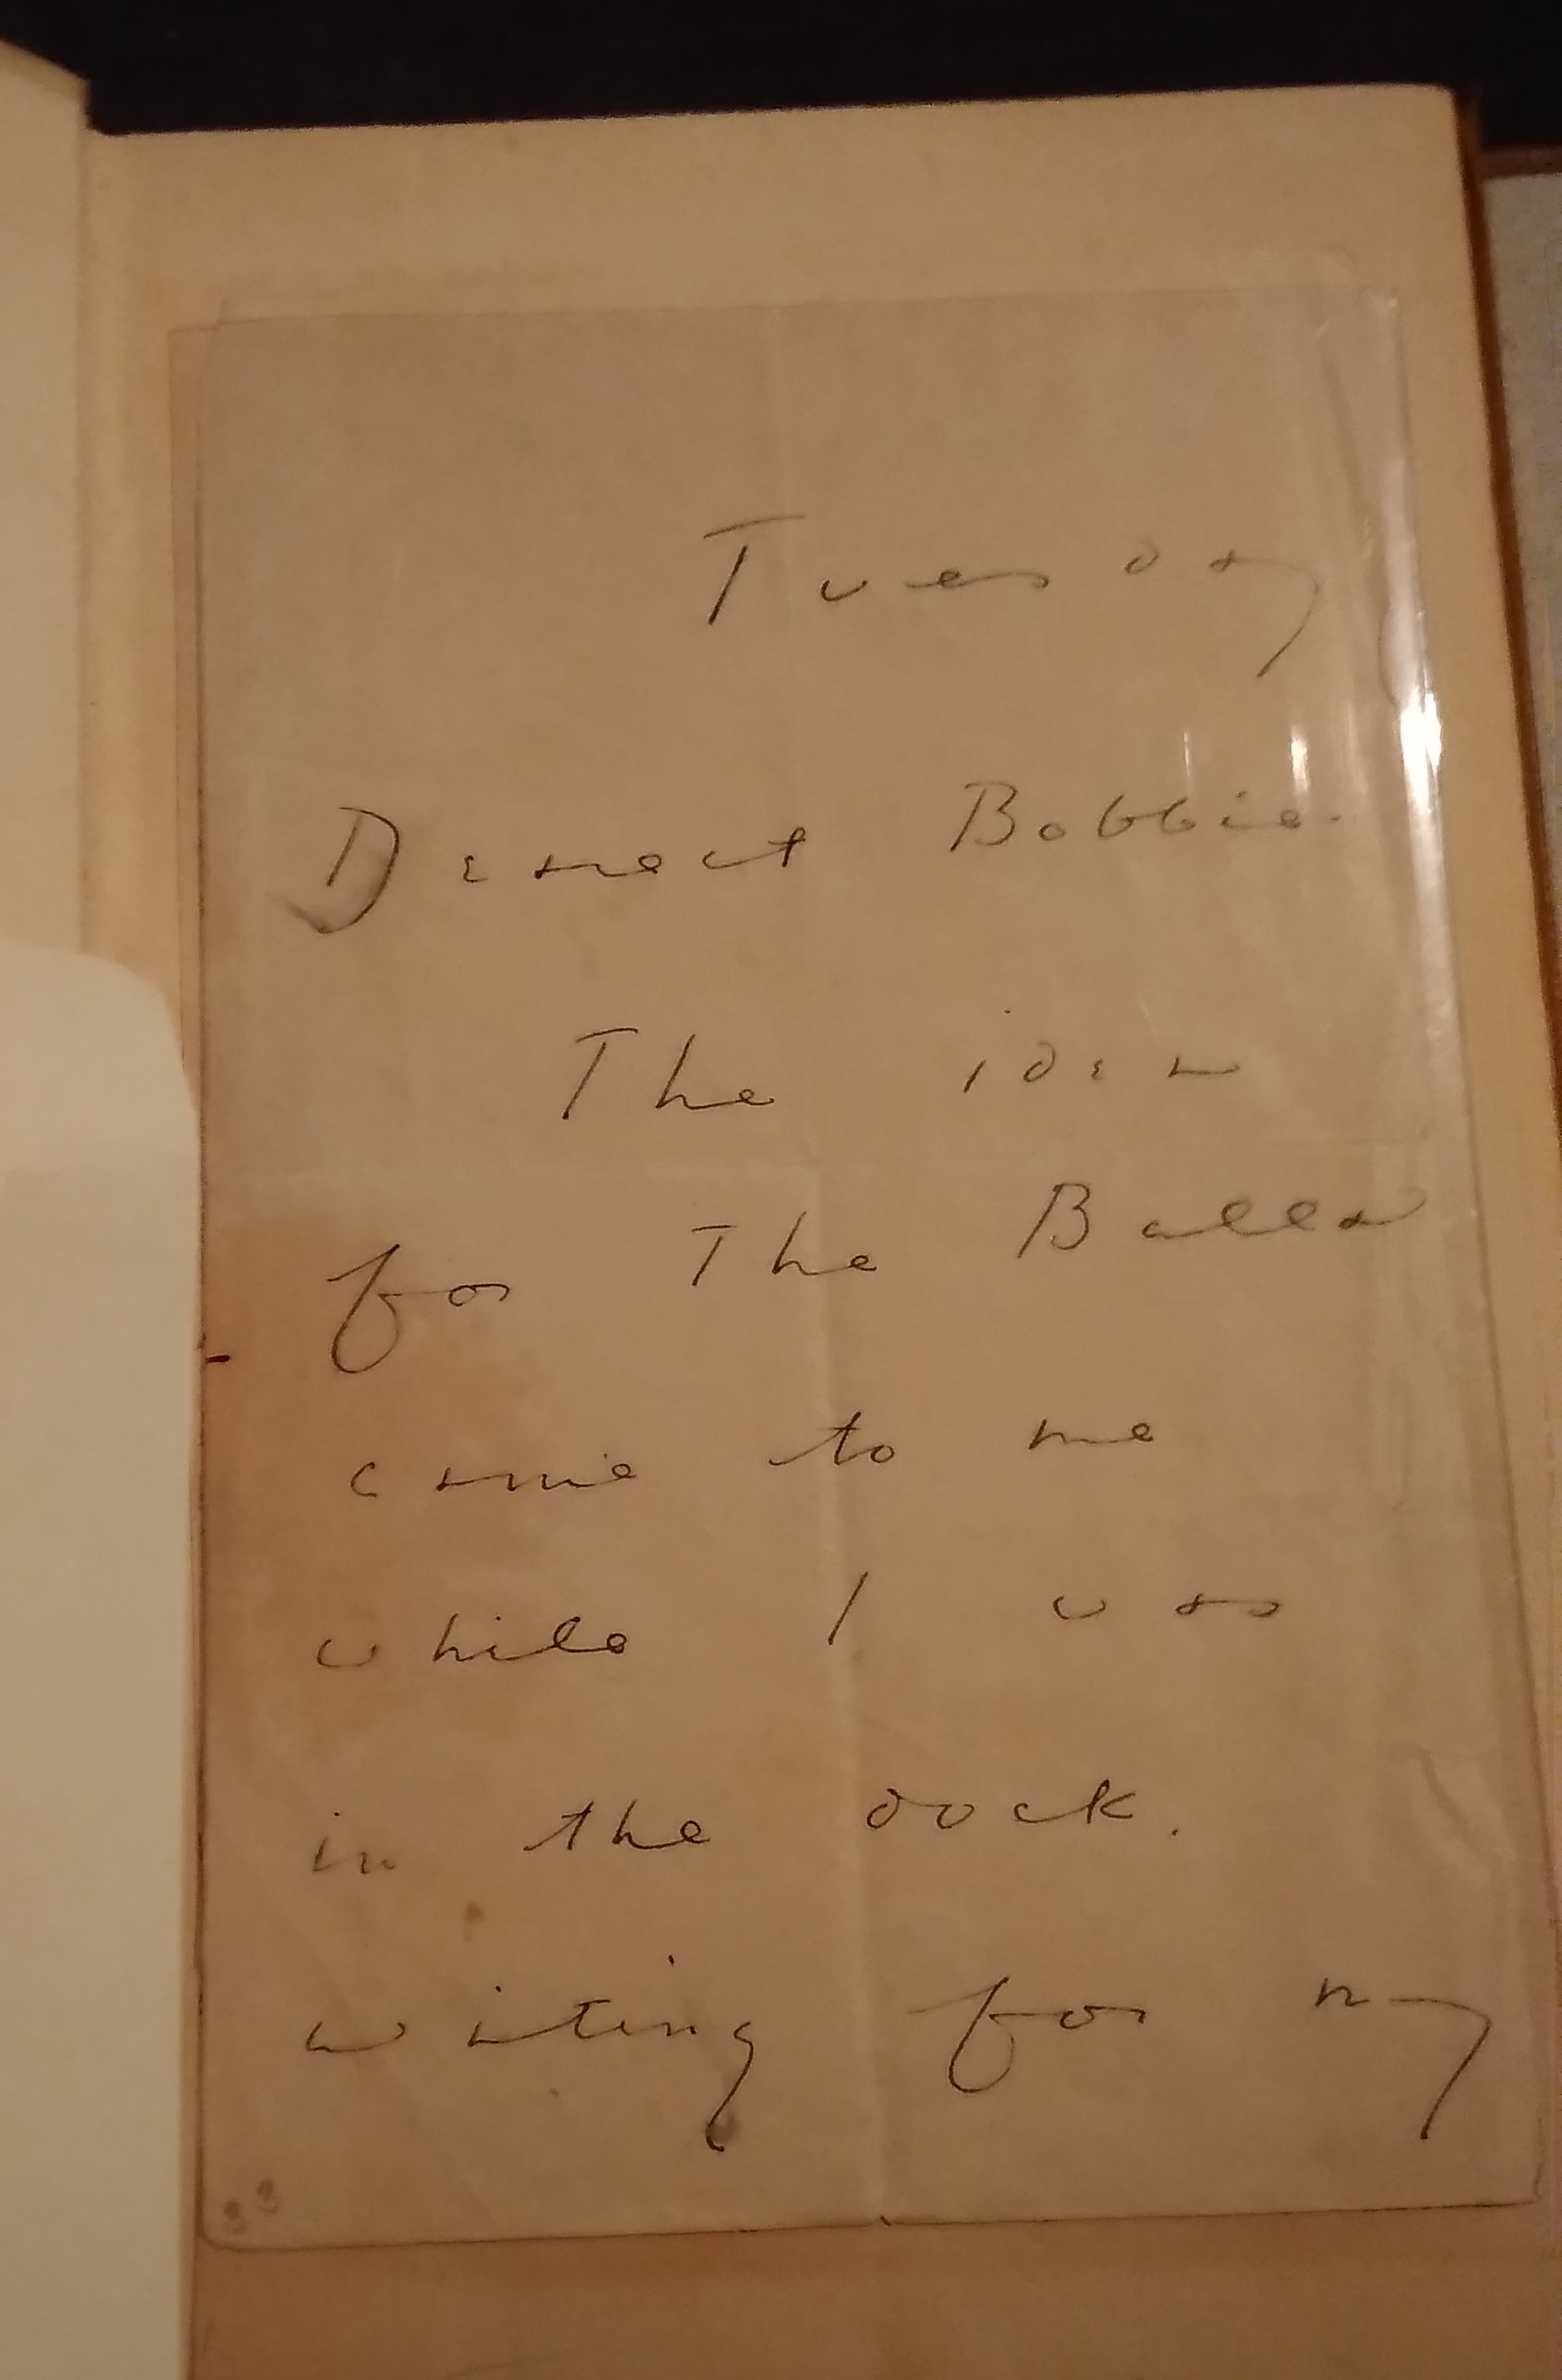 Tuesday
Dearest Bobbie.
The idea
for The Ballad
came to me
while I was
in the dock.
waiting for my